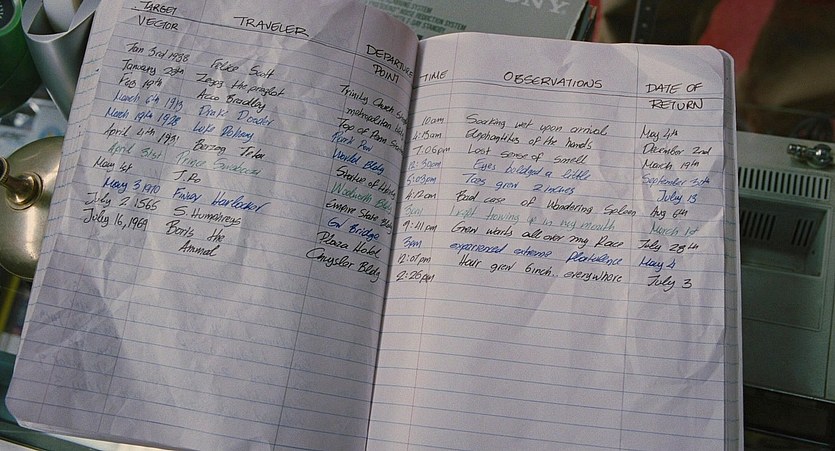 TARGET VECTOR TRAVELER DEPARTURE POINT
Jan 3rd 1938 Scott Trinity Church
January 28th Zeeg the
Feb 19th Bradley Top of Penn
March 6th 1913 Park Row
March 19th 1928 Luke World Bldg
April 4th 1931 Statue of
April 31st Woolworth Bldg
May 1st J.Ro Empire State Bldg
May 3 1910 GW Bridge
July 2 1565 S. Humphreys Plaza Hotel
July 16, 1969 Boris the Chrysler Bldg
Animal
TIME OBSERVATIONS DATE OF RETURN
10am Soaking wet upon arrival May 4th
4:15am Elephantitis of the hands December 2nd
7:06pm Lost sense of smell March 19th
12:30am Eyes bulged a little September 30th
5:03pm Toes grew 2 inches July 13
4:12am Bad case of Wandering Spleen Aug 6th
3am Light trowing up in my mouth March 1st
9:41pm Grew warts all over my Face July 28th
3pm experienced extreme flatulence May 4
12:01pm Hair grew 6inch.. everywhere July 3
2:26pm
SONY